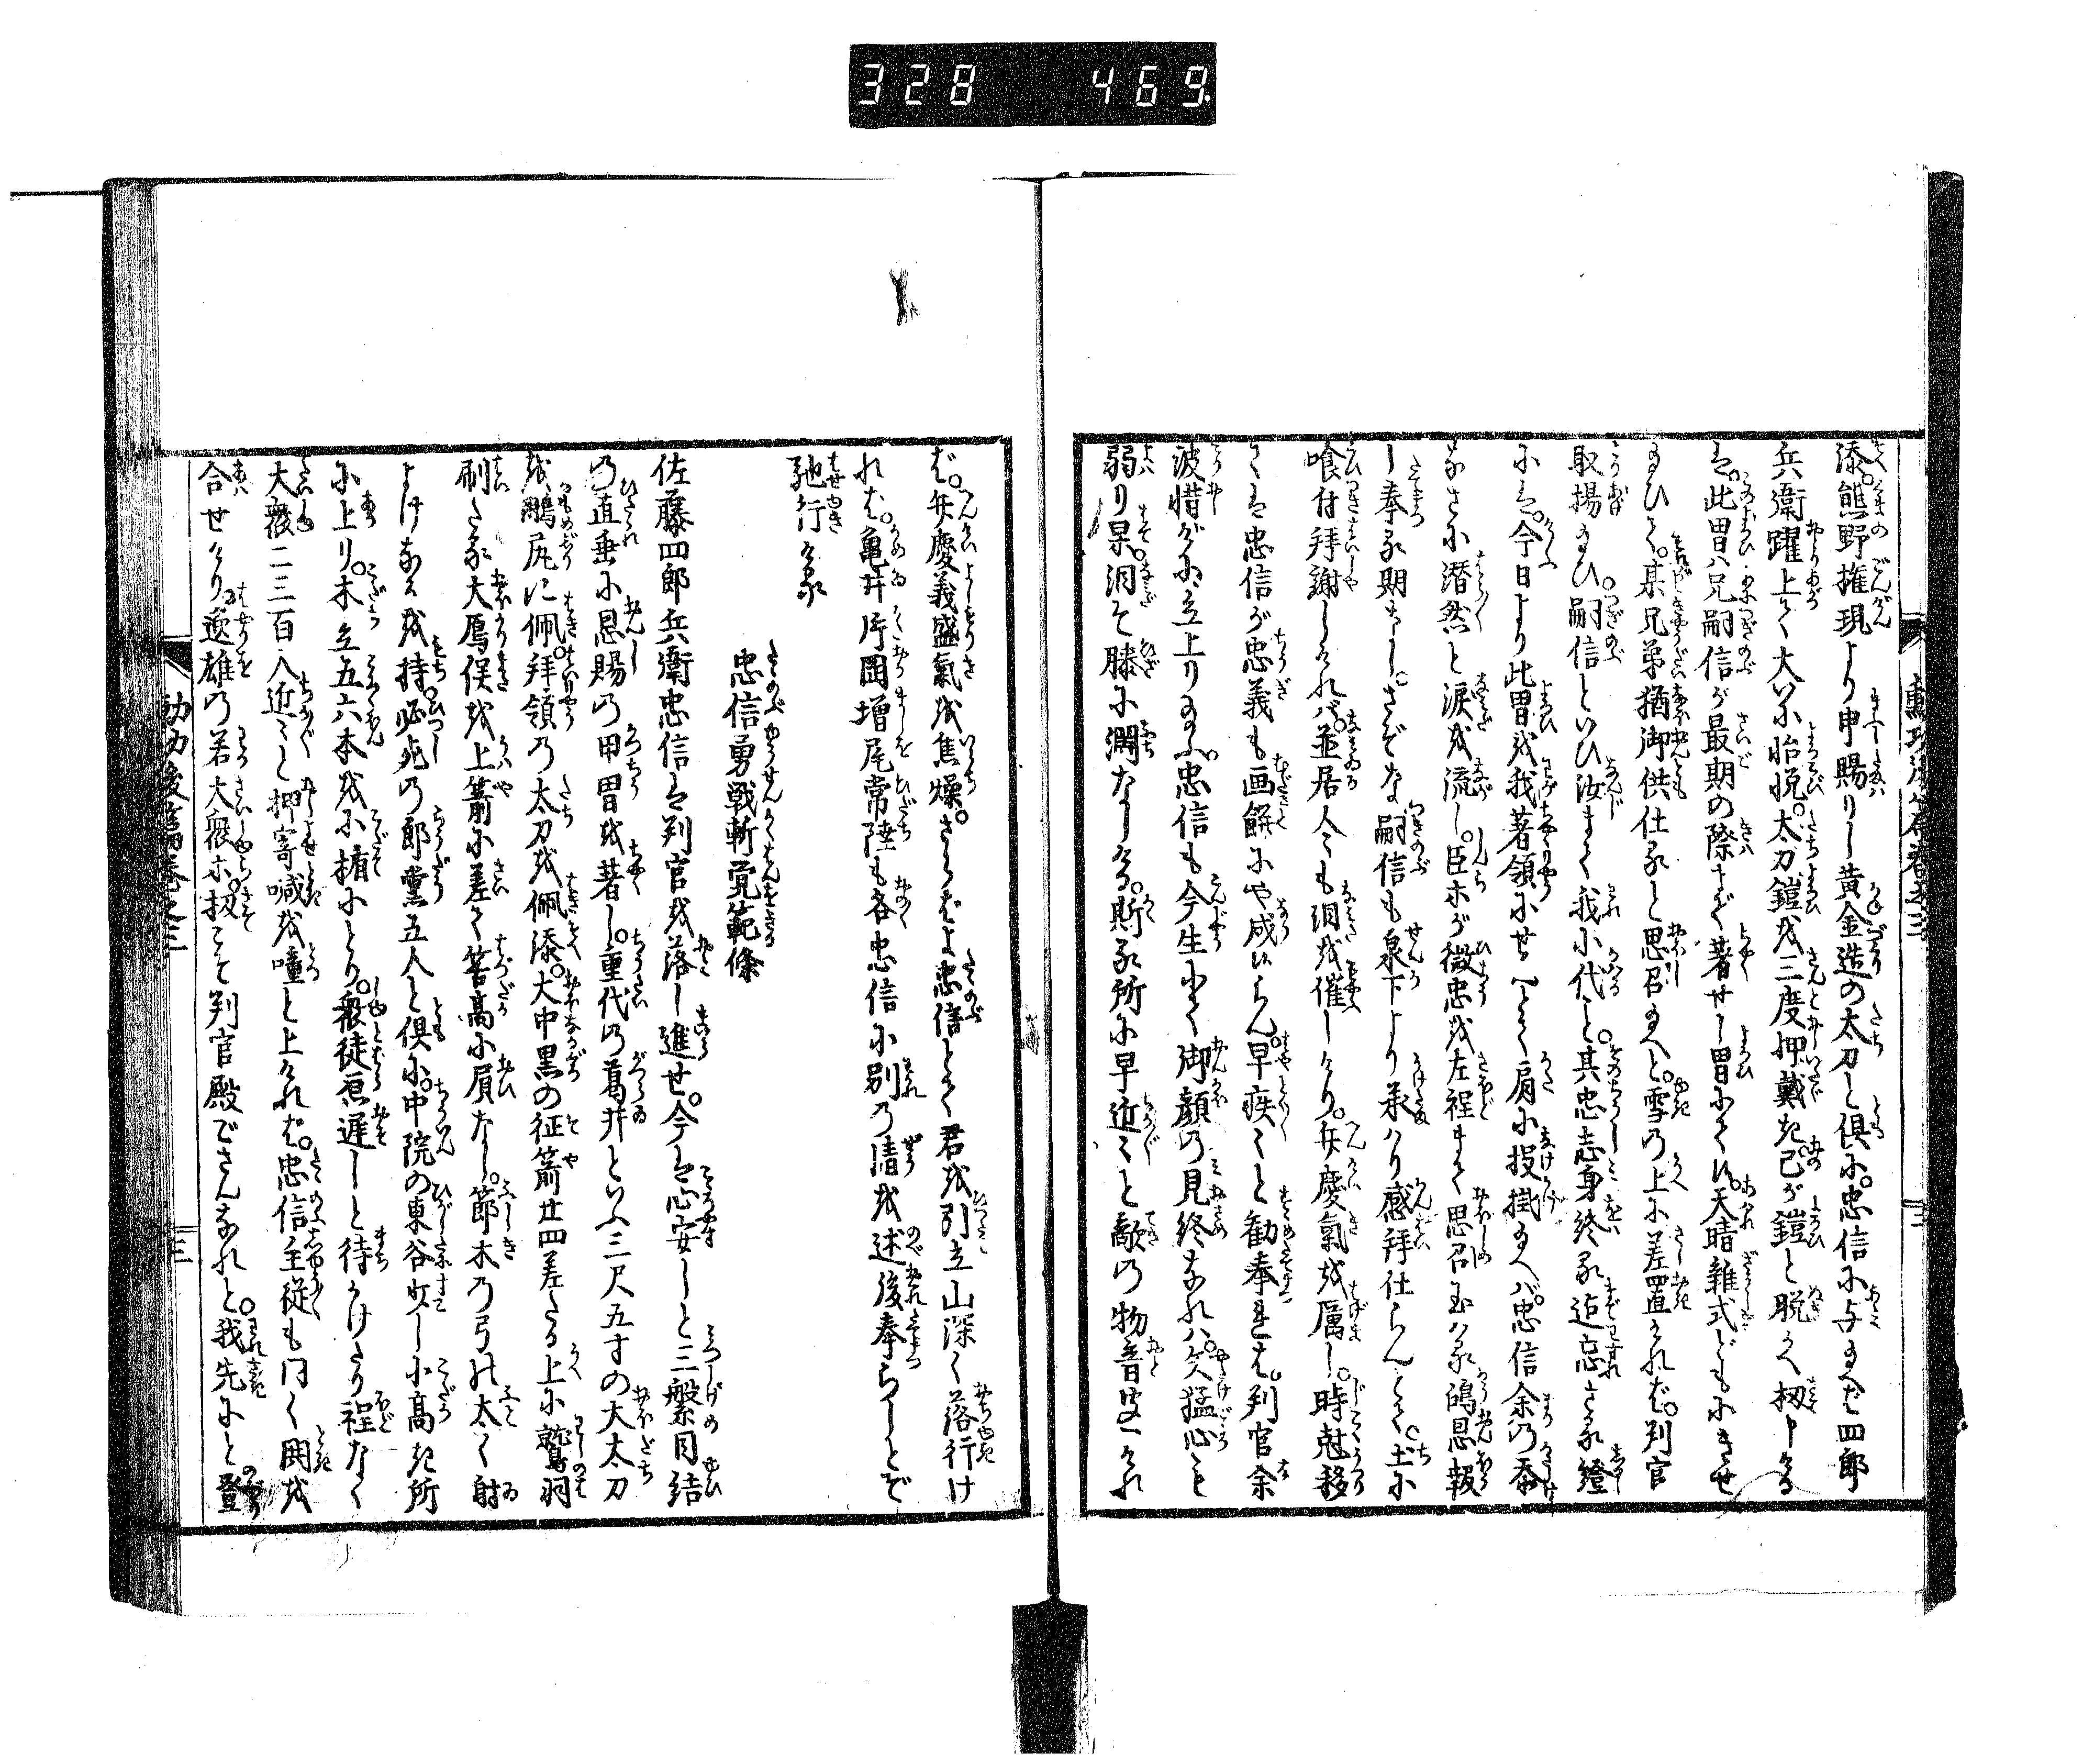 328 469
添。熊野権現より申賜りし黄金造の太刀と倶に。忠信に与玉へば四郎
兵衛躍上て大いに怡悦。太刀鎧を三度押戴き。己が鎧と脱かへ扨申ける
は。此冑ハ兄嗣信が最期の際まで著せし冑にて候。天晴雑式どもにきせ
玉ひて。某兄弟猶御供仕ると思召玉へと。雪の上に差置ければ。判官
取揚玉ひ。嗣信といひ汝まで我に代こと。其忠志身終る迄忘さる證
には。今日より此冑を我著領にせんとて肩に投掛玉へバ。忠信余の忝
なさに潜然と涙を流し。臣等が微忠を左程まで思召玉はる鴻恩報
し奉る期もなし。さぞな嗣信も泉下より承はり感拝仕らんとて。土に
喰付拝謝しければ。並居人々も泪を催しけり。弁慶氣を厲し。時尅移
ては忠信が忠義も画餅にや成けん。早疾々と勧奉れば。判官余
波惜げに立上り玉ふ。忠信も今生にて御顔の見終なれバ。矢猛心も
弱り果。泪を膝に澗なしける。斯る所に早近々と敵の物音聞へけれ
ば。弁慶義盛氣を焦燥。さらばよ忠信とて君を引立山深く落行け
れば。亀井片岡増尾常陸も各忠信に別の情を述後奉らじとぞ
馳行ける
忠信勇戦斬覚範條
佐藤四郎兵衛忠信は判官を落し進せ。今は心安しと三繋目結
の直垂に恩賜の甲冑を著し。重代の葛井といふ三尺五寸の大太刀
を鴎尻に佩。拝領の太刀を佩添。大中黒の征箭廿四差たる上に鷲羽
刷たる大鴈俣を上箭に差て筈高に負なし。節木の弓の太く射
よげなるを持。必死の郎黨五人と倶に。中院の東谷少し小高き所
に上り。木立五六本を小楯にとり。衆徒原遅しと待かけたり程なく
大衆二三百人近々と押寄喊を嘡と上ければ。忠信主従も同く鬨を
合せけり。逸雄の若大衆等。扨こそ判官殿でさんなれと。我先にと登
三